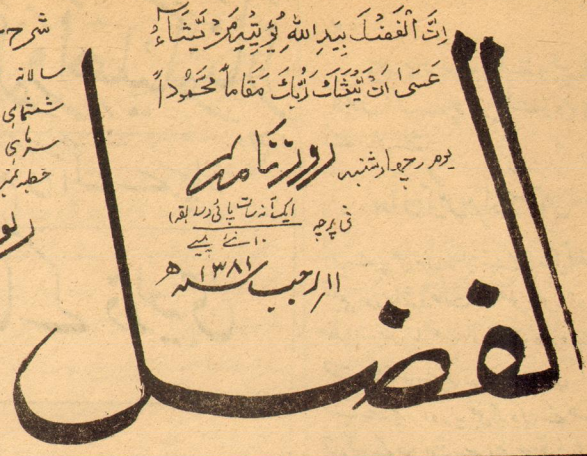 اِنَّ الْفَضْلَ بِيَدِ اللّٰهِ يُؤْتِيْهِ مَنْ يَّشَآءُ
عَسٰى اَنْ يَّبْعَثَكَ رَبُّكَ مَقَامًا مَّحْمُوْدًا
یوم چہارشنبہ
روزنامہ
فی پرچہ
ایک آنہ سات پائی (سابقہ)
۱۰ نئے پیسے
۱۱ رجب سنہ ۱۳۸۱ھ
الفضل
شرح
سالانہ
ششماہی
سہ ماہی
خطبہ نمبر